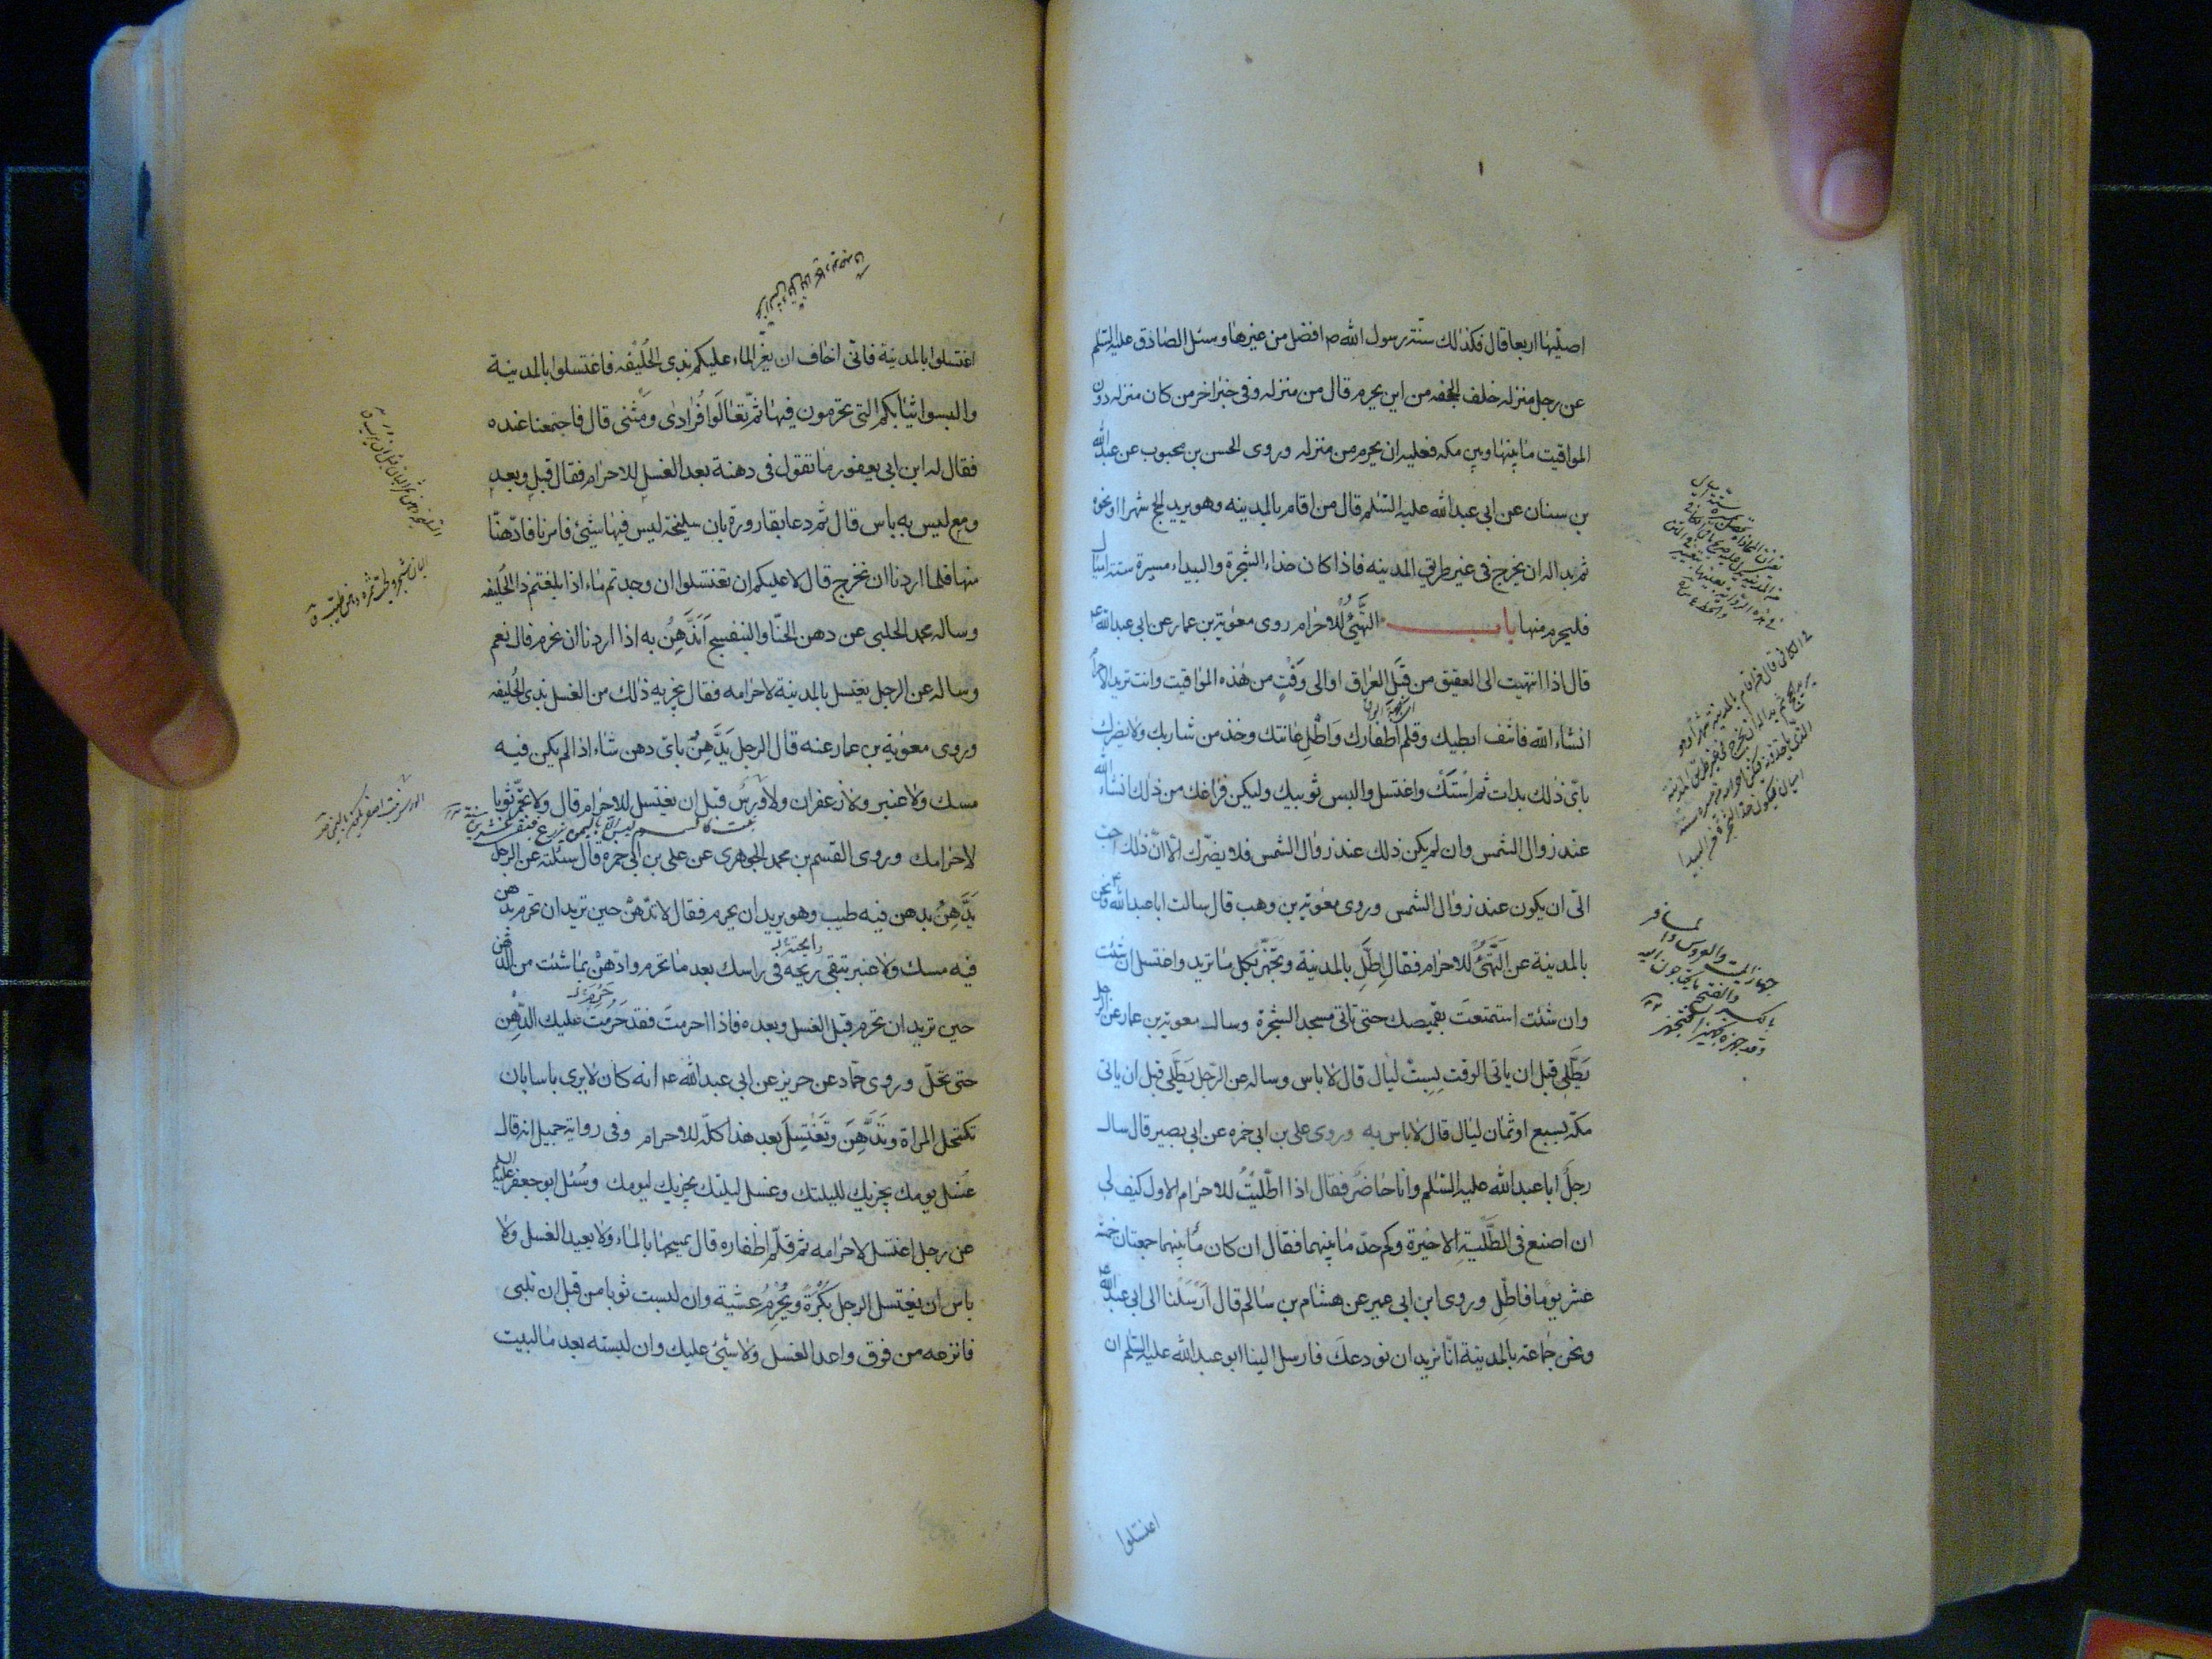 اصليها اربعا قال فكذلك سنة رسول الله ص افضل من غيرها وسئل الصادق عليه السلم
عن رجل منزله خلف الجحفه من اين يحرم قال من منزله وفى خبر اخر من كان منزله دون
المواقيت ما بينها وبين مكه فعليه ان يحرم من منزله وروى الحسن بن محبوب عن عبد الله
بن سنان عن ابى عبد الله عليه السلم قال من اقام بالمدينه وهو يريد الحج شهرا او نحوه
ثم بدا له ان يخرج فى غير طريق المدينه فاذا كان حذاء الشجرة والبيداء مسيرة ستة اميال
فليحرم منها باب التهيؤ للاحرام روى معوية بن عمار عن ابى عبد الله ع
قال اذا انتهيت الى العقيق من قبل العراق او الى وقت من هذه المواقيت وانت تريد الاحرام
انشاء الله فانتف ابطيك وقلم اظفارك واطل عانتك وخذ من شاربك ولا يضرك
باى ذلك بدات ثم استك واغتسل والبس ثوبيك وليكن فراغك من ذلك انشاء الله
عند زوال الشمس وان لم يكن ذلك عند زوال الشمس فلا يضرك الا ان ذلك احب
الى ان يكون عند زوال الشمس وروى معوية بن وهب قال سالت ابا عبد الله ع ونحن
بالمدينة عن التهيؤ للاحرام فقال اطل بالمدينة وتجهز بكل ما تريد واغتسل ان شئت
وان شئت استمتعت بقميصك حتى تاتى مسجد الشجرة وساله معوية بن عمار عن الرجل
يطلى قبل ان ياتى الوقت بست ليال قال لا باس وساله عن الرجل يطلى قبل ان ياتى
مكة بسبع او ثمان ليال قال لا باس به وروى على بن ابى حمزه عن ابى بصير قال سال
رجل ابا عبد الله عليه السلم وانا حاضر فقال اذا اطليت للاحرام الاول كيف لى
ان اصنع فى الطلية الاخيرة وكم حد ما بينهما فقال ان كان ما بينهما جمعتان خمسة
عشر يوما فاطل وروى ابن ابى عمير عن هشام بن سالم قال ارسلنا الى ابى عبد الله ع
ونحن جماعة بالمدينة انا نريد ان نودعك فارسل الينا ابو عبد الله عليه السلم ان
اغتسلوا
اغتسلوا بالمدينة فانى اخاف ان يعز الماء عليكم بذى الحليفه فاغتسلوا بالمدينة
والبسوا ثيابكم التى تحرمون فيها ثم تعالوا فرادى ومثنى قال فاجتمعنا عنده
فقال له ابن ابى يعفور ما تقول فى دهنة بعد الغسل للاحرام فقال قبل وبعد
ومع ليس به باس قال ثم دعا بقارورة بان سليخة ليس فيها شيئ فامرنا فادهنا
منها فلما اردنا ان نخرج قال لا عليكم ان تغتسلوا ان وجدتم ماء اذا بلغتم ذا الحليفه
وساله محمد الحلبى عن دهن الحنا والبنفسج اندهن به اذا اردنا ان نحرم قال نعم
وساله عن الرجل يغتسل بالمدينة لاحرامه فقال يجزيه ذلك من الغسل بذى الحليفه
وروى معوية بن عمار عنه قال الرجل يدهن باى دهن شاء اذا لم يكن فيه
مسك ولا عنبر ولا زعفران ولا ورس قبل ان يغتسل للاحرام قال ولا تجمر ثوبا
لاحرامك وروى القسم بن محمد الجوهرى عن على بن ابى حمزه قال سئلته عن الرجل
يدهن بدهن فيه طيب وهو يريد ان يحرم فقال لا تدهن حين تريد ان تحرم بدهن
فيه مسك ولا عنبر تبقى ريحه فى راسك بعد ما تحرم وادهن بما شئت من الدهن
حين تريد ان تحرم قبل الغسل وبعده فاذا احرمت فقد حرمت عليك الدهن
حتى تحل وروى حماد عن حريز عن ابى عبد الله ع انه كان لا يرى باسا بان
تكتحل المراة وتدهن وتغتسل بعد هذا كله للاحرام وفى رواية جميل انه قال
غسل يومك يجزيك لليلتك وغسل ليلتك يجزيك ليومك وسئل ابو جعفر عليه السلم
عن رجل اغتسل لاحرامه ثم قلم اظفاره قال يمسحها بالماء ولا يعيد الغسل ولا
باس ان يغتسل الرجل بكرة ويحرم عشية وان لبست ثوبا من قبل ان تلبى
فانزعه من فوق واعد الغسل ولا شيئ عليك وان لبسته بعد ما لبيت